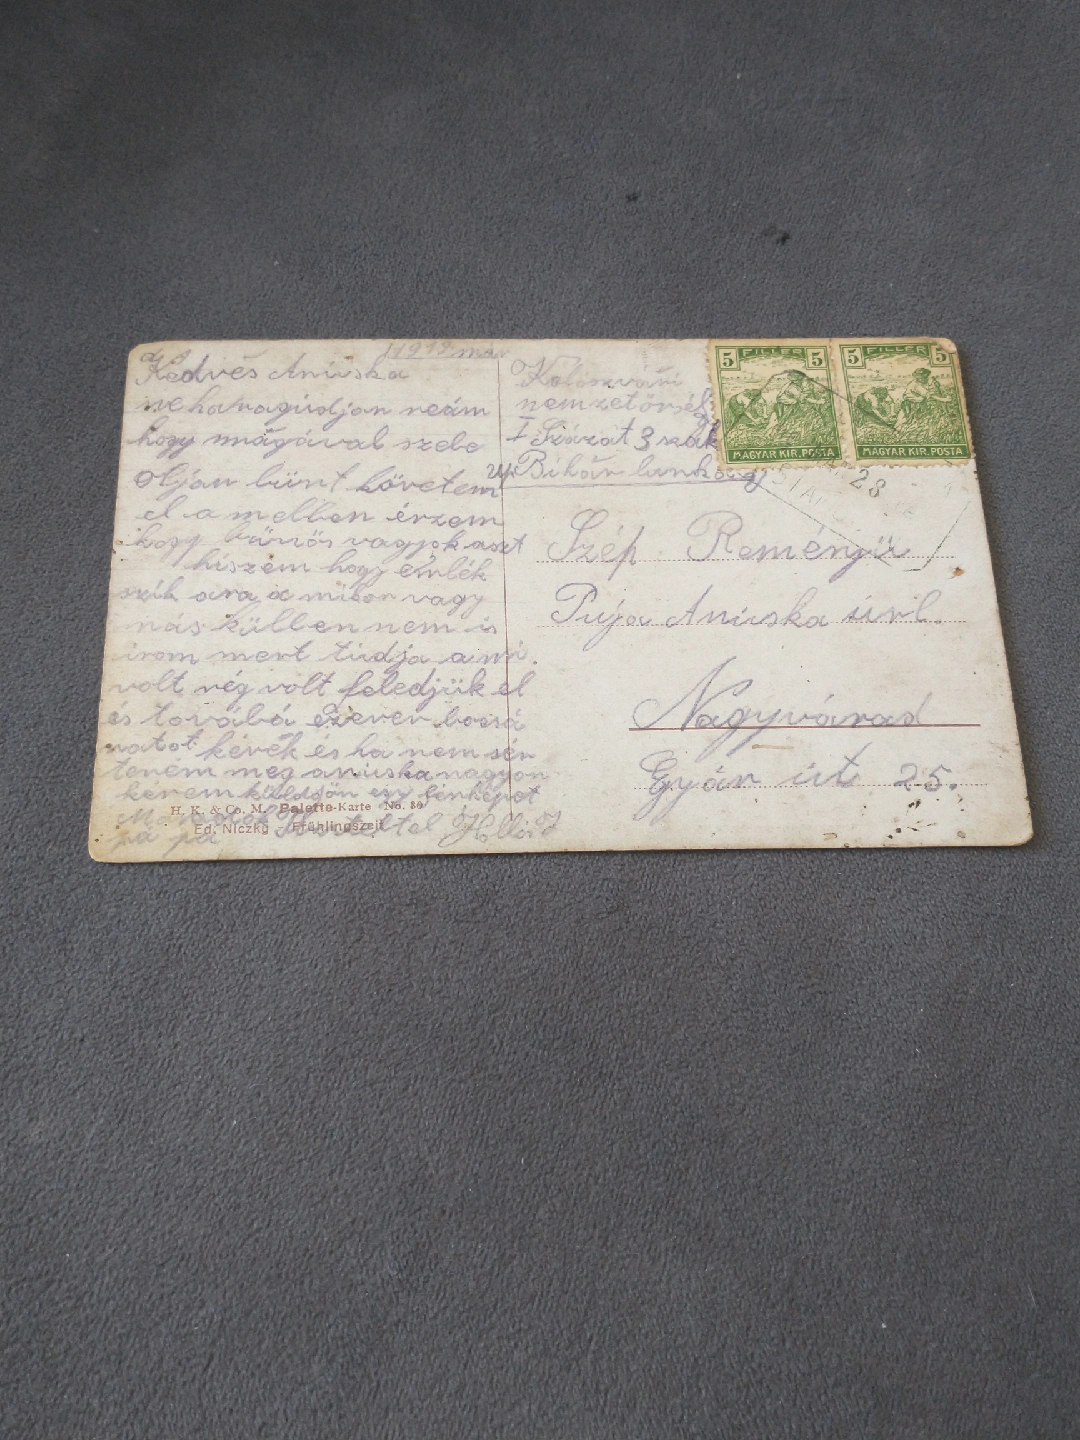 1919 mar
Kedves Aniiska
ne haragudjon reám
hogy mágával szebe
olján bünt követem
el a melben érzem
hogy bünös vagyok aszt
hiszem hogy emlék
szik ara a mikor vagy
más küllben nem is
irom mert tudja a mi
volt rég volt feledjük el
és továbá ezerer bocsá
natot kérek és ha nem sér
teném meg aniuska nagyon
kérem küldjön egy fénképet
Maradok Tiszteltel
pá pá
H. K. & Co. M. Palette-Karte No. 30
Ed. Niczky Frühlingszeit
Kolozsvári
nemzetőrség
I Század 3 szak
Bihar
5 FILLER 5
MAGYAR KIR. POSTA
5 FILLER 5
MAGYAR KIR. POSTA
23
Szép Reményü
Puja Aniuska url.
Nagyvárad
Gyár út 25.